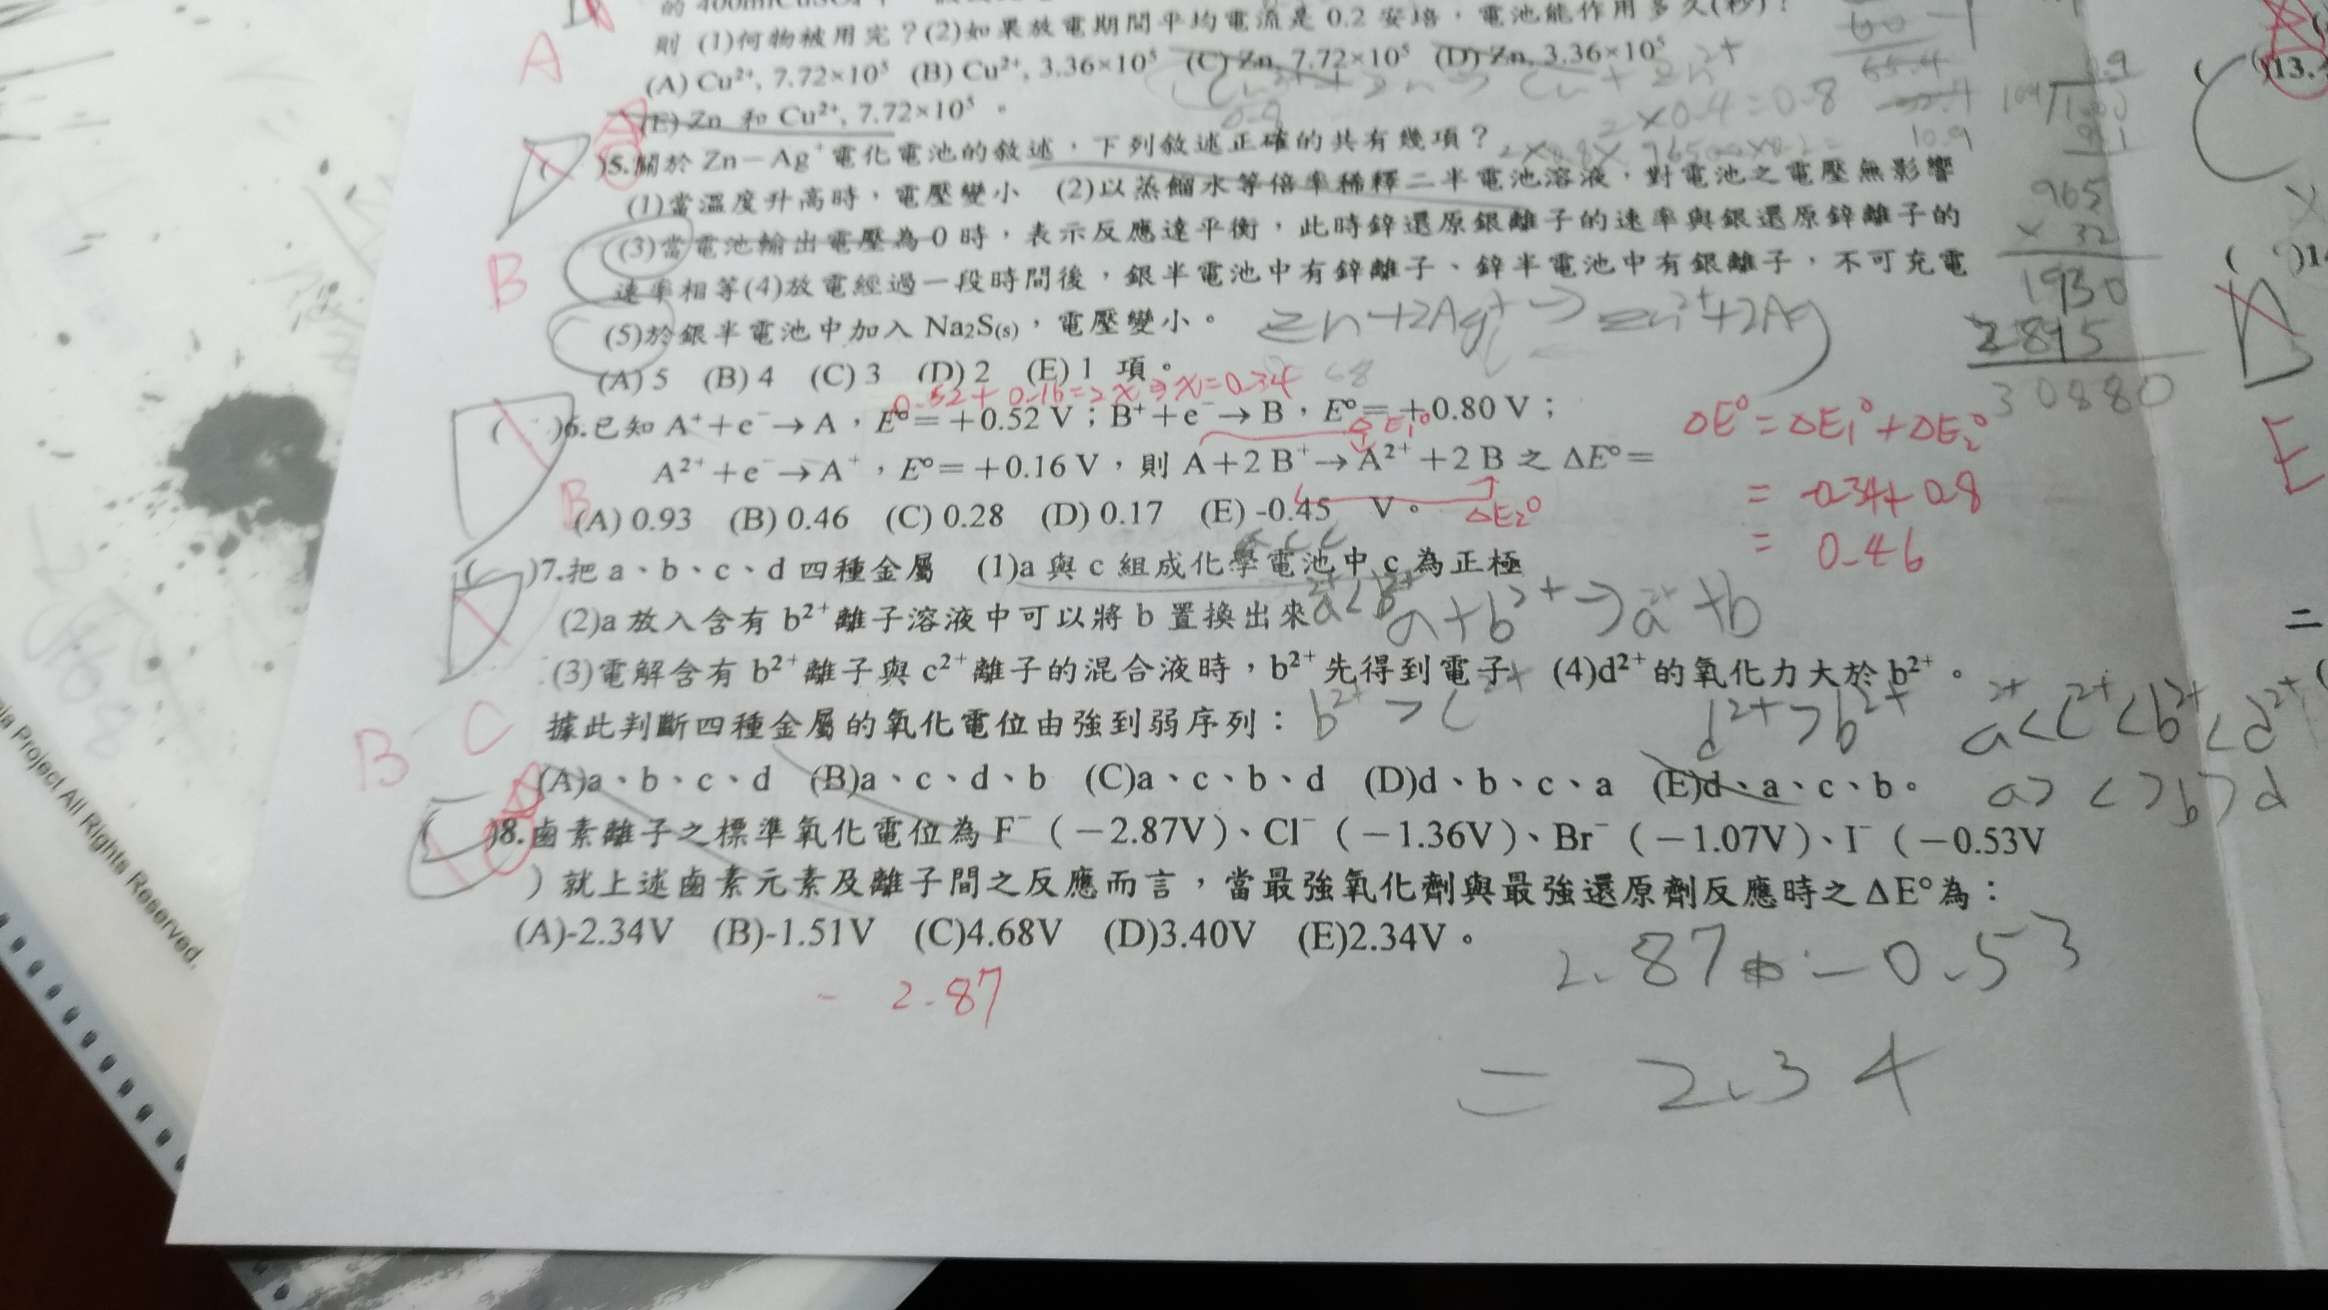 的 400mlCuSO₄
則 (1)何物被用完？(2)如果放電期間平均電流是 0.2 安培，電池能作用多久(秒)？
(A) Cu²⁺, 7.72×10⁵ (B) Cu²⁺, 3.36×10⁵ (C) Zn, 7.72×10⁵ (D) Zn, 3.36×10⁵
(E) Zn 和 Cu²⁺, 7.72×10⁵ 。
A
2×0.4=0.8
)5.關於 Zn－Ag⁺電化電池的敘述，下列敘述正確的共有幾項？
(1)當溫度升高時，電壓變小 (2)以蒸餾水等倍率稀釋二半電池溶液，對電池之電壓無影響
(3)當電池輸出電壓為 0 時，表示反應達平衡，此時鋅還原銀離子的速率與銀還原鋅離子的
速率相等(4)放電經過一段時間後，銀半電池中有鋅離子、鋅半電池中有銀離子，不可充電
(5)於銀半電池中加入 Na₂S₍ₛ₎，電壓變小。
Zn+2Ag⁺→Zn²⁺+2Ag
(A) 5 (B) 4 (C) 3 (D) 2 (E) 1 項。
B
965
× 32
1930
2895
30880
0.52+0.16=2x⇒x=0.34
( )6.已知 A⁺＋e⁻→A，E°＝＋0.52 V；B⁺＋e⁻→B，E°＝＋0.80 V；
A²⁺＋e⁻→A⁺，E°＝＋0.16 V，則 A＋2 B⁺→A²⁺＋2 B 之 ΔE°＝
(A) 0.93 (B) 0.46 (C) 0.28 (D) 0.17 (E) -0.45 V。
B
ΔE₁°
ΔE₂°
ΔE°=ΔE₁°+ΔE₂°
= -0.34+0.8
= 0.46
( )7.把 a、b、c、d 四種金屬 (1)a 與 c 組成化學電池中 c 為正極
(2)a 放入含有 b²⁺離子溶液中可以將 b 置換出來
a²⁺<b²⁺
a+b²⁺→a²⁺+b
(3)電解含有 b²⁺離子與 c²⁺離子的混合液時，b²⁺先得到電子 (4)d²⁺的氧化力大於 b²⁺。
據此判斷四種金屬的氧化電位由強到弱序列：
b²⁺>c²⁺
d²⁺>b²⁺
a²⁺<c²⁺<b²⁺<d²⁺
(A)a、b、c、d (B)a、c、d、b (C)a、c、b、d (D)d、b、c、a (E)d、a、c、b。
a>c>b>d
B C
( )8.鹵素離子之標準氧化電位為 F⁻（－2.87V）、Cl⁻（－1.36V）、Br⁻（－1.07V）、I⁻（－0.53V
）就上述鹵素元素及離子間之反應而言，當最強氧化劑與最強還原劑反應時之 ΔE°為：
(A)-2.34V (B)-1.51V (C)4.68V (D)3.40V (E)2.34V。
- 2.87
2.87 - 0.53
= 2.34
)13.
( )1
E
二
a Project All Rights Reserved.